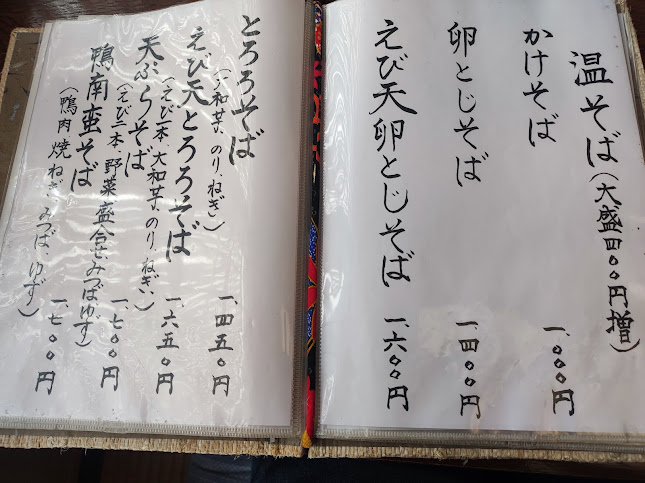 温そば(大盛四〇〇円増)
かけそば 一、〇〇〇円
卵とじそば 一、四〇〇円
えび天卵とじそば 一、六〇〇円
とろろそば 一、四五〇円
(大和芋、のり、ねぎ)
えび天とろろそば 一、六五〇円
(えび一本 大和芋、のり、ねぎ、)
天ぷらそば 一、七〇〇円
(えび二本 野菜盛合せ、みつば、ゆず)
鴨南蛮そば 一、七〇〇円
(鴨肉 焼ねぎ、みつば、ゆず)